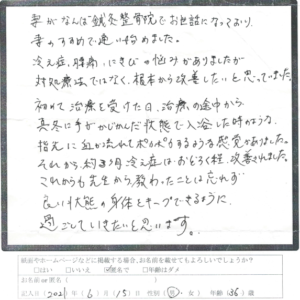 妻がなんば鍼灸整骨院でお世話になっており、
妻のすすめで通い始めました。
冷え症、腰痛、にきびの悩みがありましたが
対処療法ではなく、根本から改善したいと思っていました。
初めて治療を受けた日、治療の途中から
真冬に手がかじかんだ状態で入浴した時のような、
指先に血が流れてポカポカするような感覚がありました。
それから約3ヶ月、冷え症はおどろく程、改善されました。
これからも先生から教わったことは忘れず
良い状態の身体をキープできるように、
過ごしていきたいと思います。
紙面やホームページなどに掲載する場合、お名前を載せてもよろしいでしょうか?
□はい □いいえ ☑匿名で □年齢はダメ
お名前or匿名( )
記入日(2021年 6月 15日 性別(男・女) 年齢(36)歳